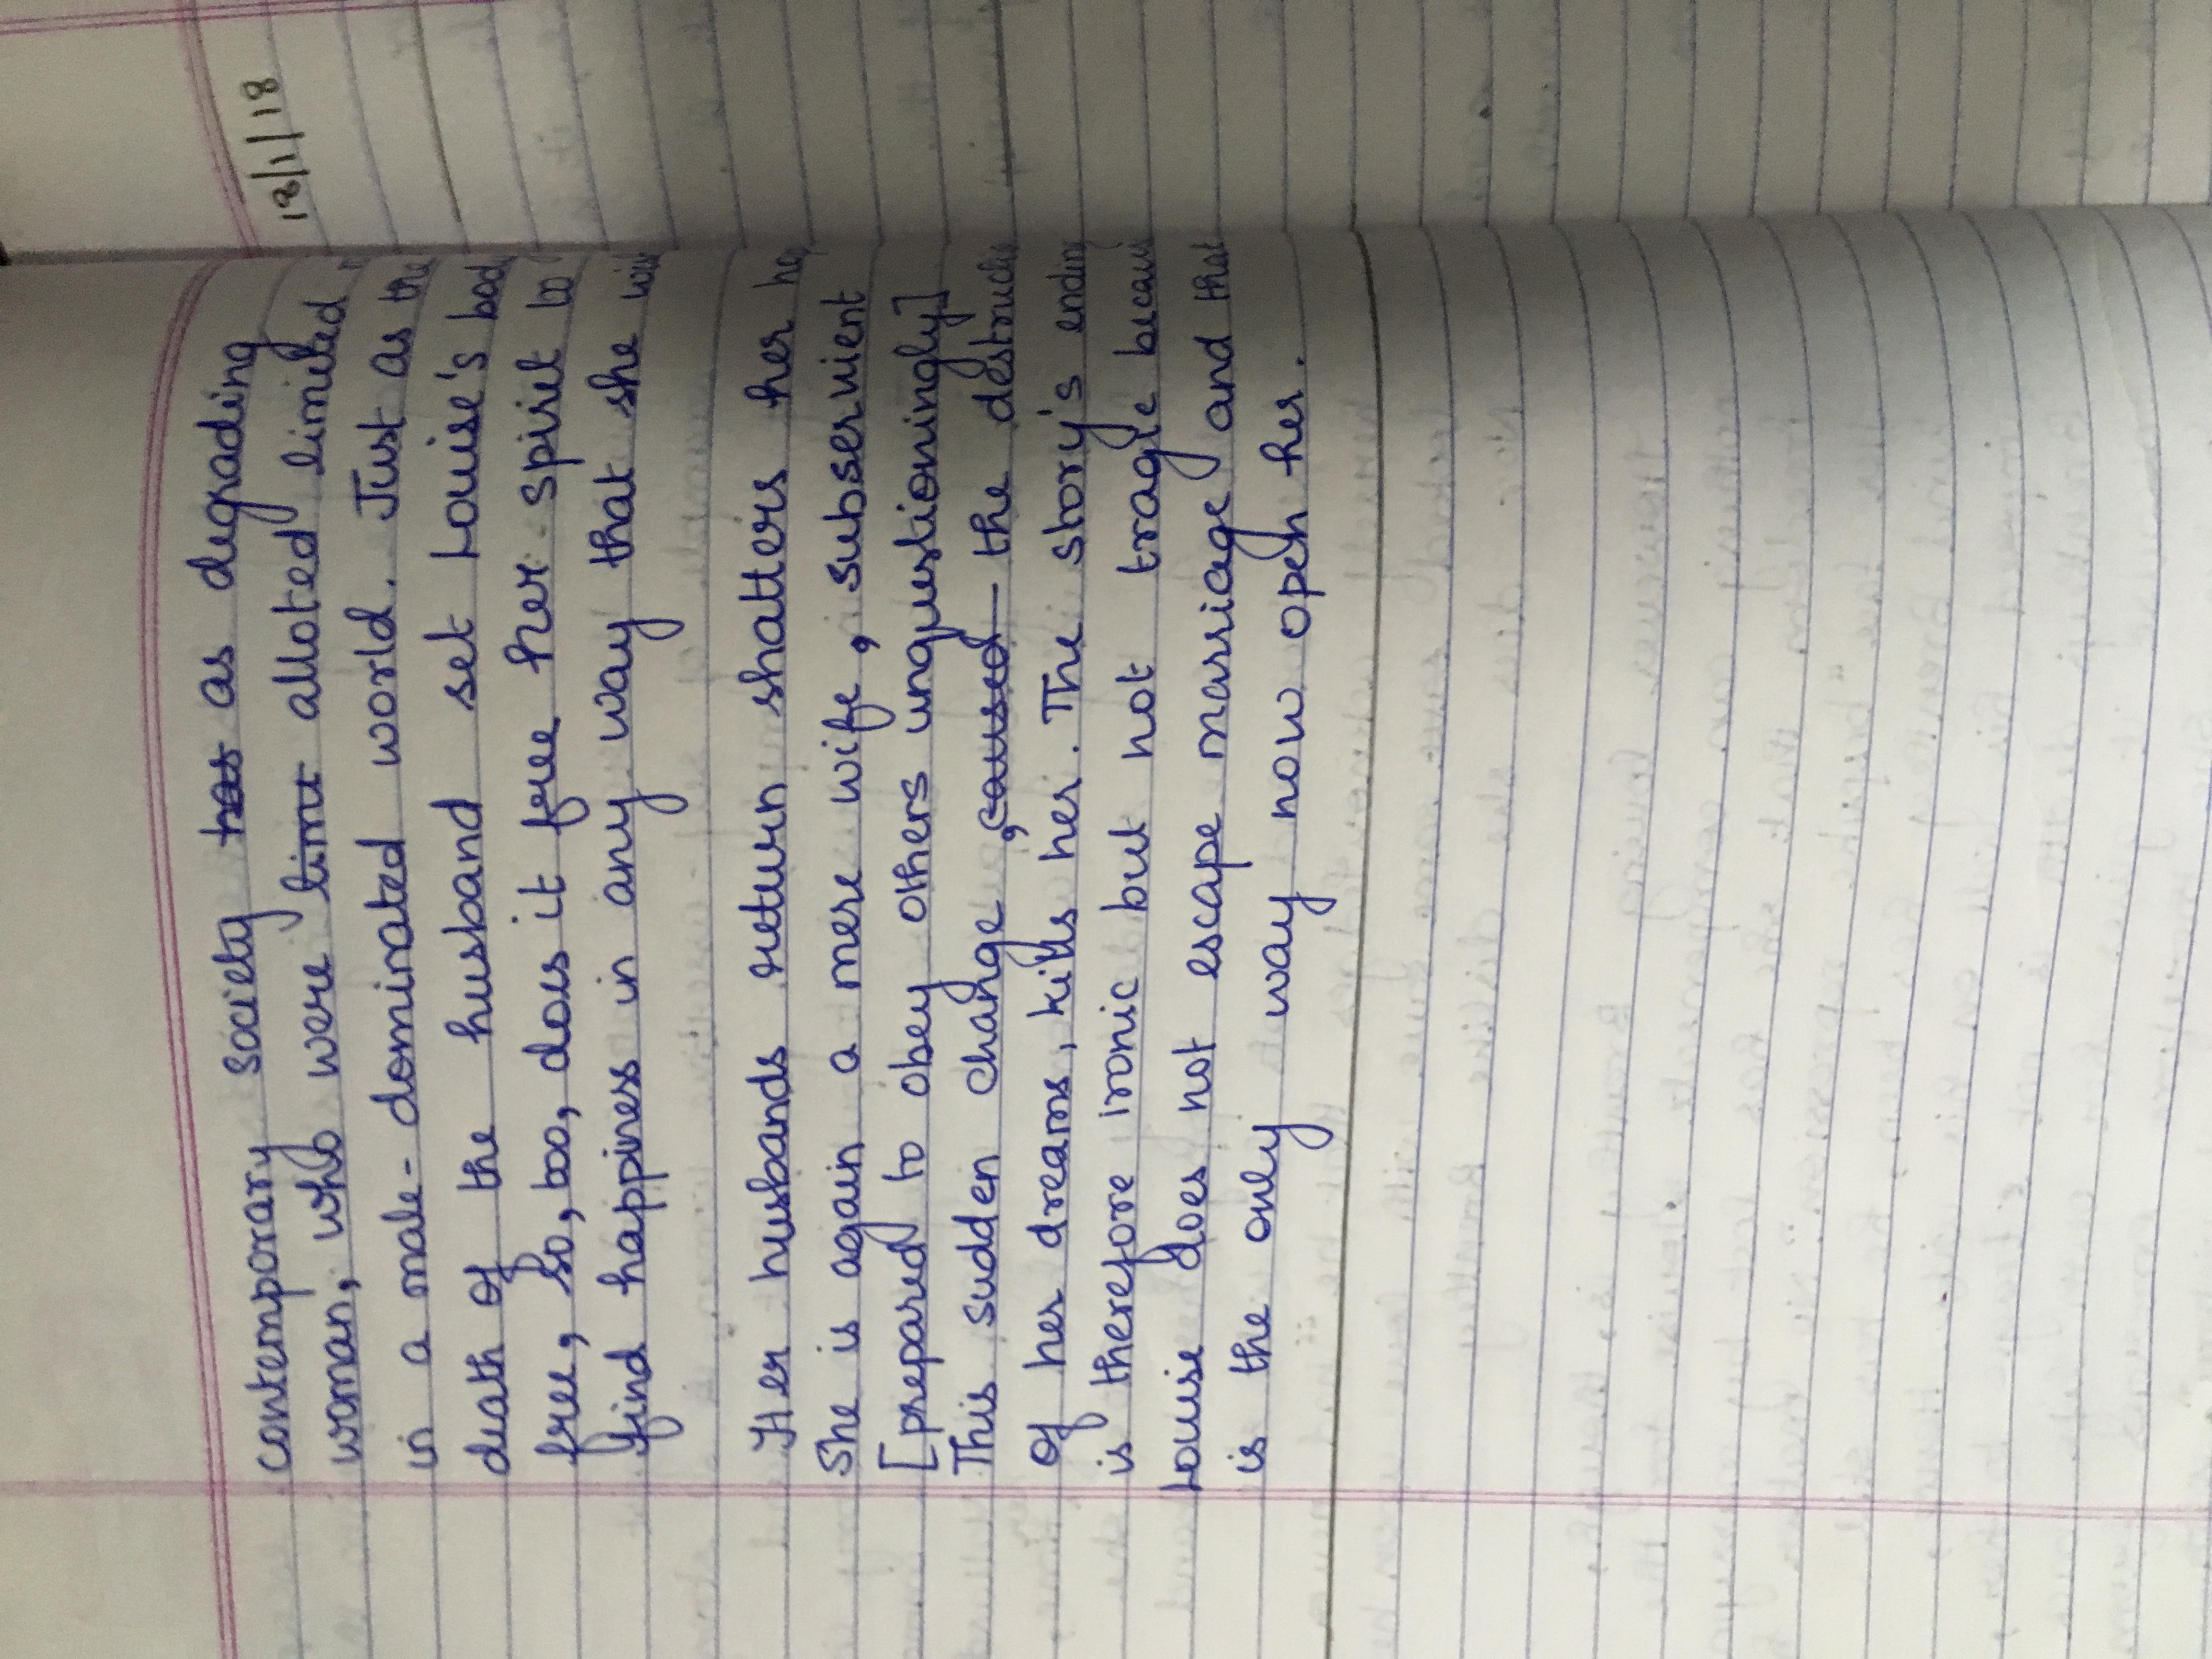 contemporary society has as degrading
woman, who were limt alloted limited
in a male-dominated world. Just as the
death of the husband set Louise's body
free, so, too, does it free her spirit to
find happiness in any way that she
Her husbands return shatters her
She is again a mere wife, subservient
[prepared to obey others unquestioningly]
This sudden change, caused the destructio
of her dreams, kills her. The story's ending
is therefore ironic but not tragic becaus
Louise does not escape marriage and that
is the only way now open her.
18/1/18